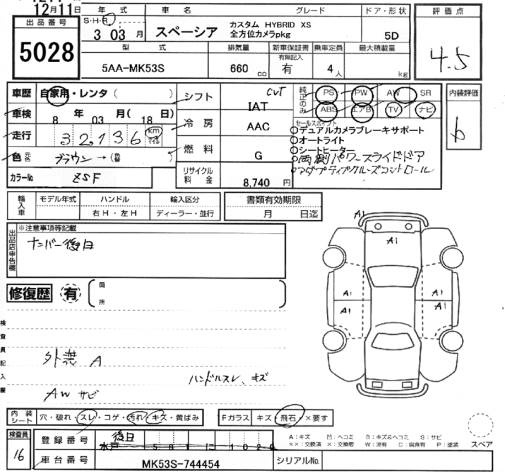 12月11日
出品番号
5028
S・H・R
3 03 月
車名
スペーシア
グレード
カスタム HYBRID XS
全方位カメラpkg
ドア・形状
5D
評価点
4.5
型式
5AA-MK53S
排気量
660 cc
新車保証書
有限記入
有
乗車定員
4 人
最大積載量
kg
車歴 自家用・レンタ( )
車検 8 年 03 月( 18 日)
走行 32,136 km
色 ブラウン→( )
カラーNo ZSF
シフト CVT IAT
冷房 AAC
燃料 G
リサイクル料金 8,740 円
純正のみ
PS PW AW SR
ABS エアB TV ナビ
内装評価
b
セールスポイント
デュアルカメラブレーキサポート
オートライト
シートヒーター
両側パワースライドドア
アダプティブクルーズコントロール
輸入車
モデル年式 年
ハンドル 右H・左H
輸入区分 ディーラー・並行
書類有効期限
月 日迄
※注意事項等記載
ナンバー後日
修復歴 有
箇所
検査員記入欄
外装 A
ハンドルスレ、キズ
AW サビ
A1
A1
A1
A1
A1
内装シート 穴・破れ・スレ・コゲ・汚れ・キズ・黄ばみ
Fガラス キズ・飛石・×要す
検査員
16
登録番号 後日
車台番号 MK53S-744454
シリアルNo.
A:キズ M:ヘコミ
スペア